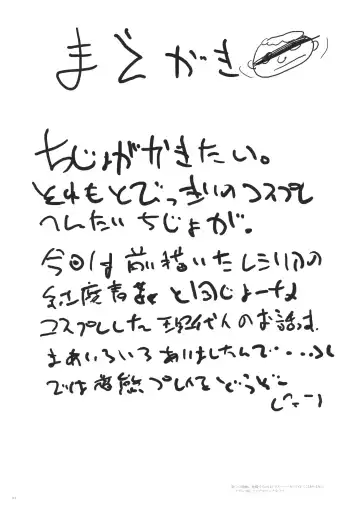 まえがき
ちじょがかきたい。
それもとびっきりのコスプレ
へんたいちじょが。
今回は前描いたレミリアの
と同じよーな
コスプレした現代人のお話は
まあいろいろありましたんで・・・
では変態プレイをどうぞー